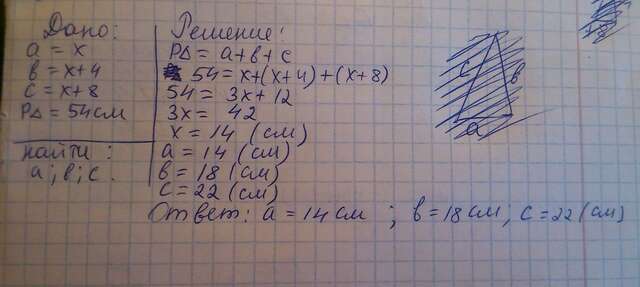 Дано:
a = x
в = x+4
c = x+8
P∆ = 54см
найти:
a; в; c.
Решение:
P∆ = a+в+c
54 = x+(x+4)+(x+8)
54 = 3x+12
3x = 42
x = 14 (см)
a = 14 (см)
в = 18 (см)
c = 22 (см)
Ответ: a = 14 см ; в = 18 см; c = 22 (см)
c
в
a